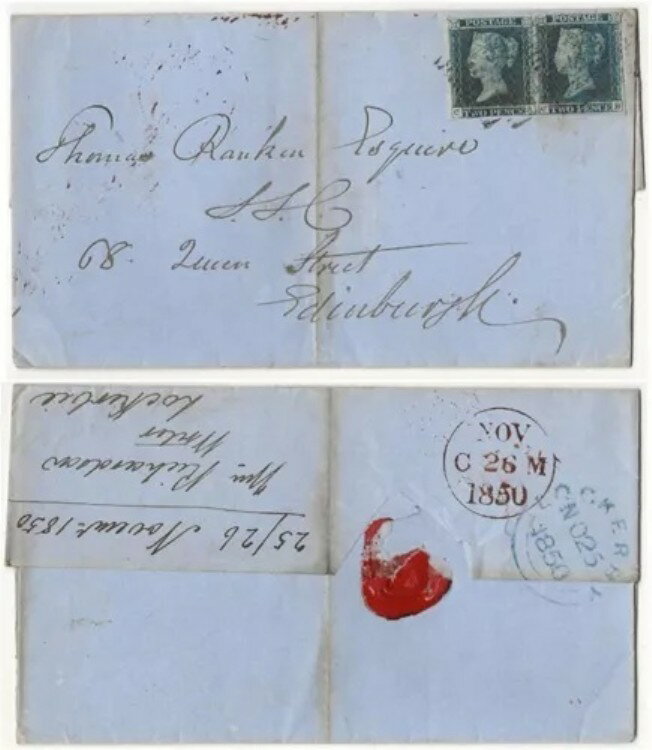 POSTAGE
TWO PENCE
POSTAGE
TWO PENCE
Thomas Ranken Esquire
S.S.C
68. Queen Street
Edinburgh.
25/26 Novemr. 1850
Wm Richardson
Writer
Lockerbie
NOV
C 26 M
1850
CKERB
NO 25
1850